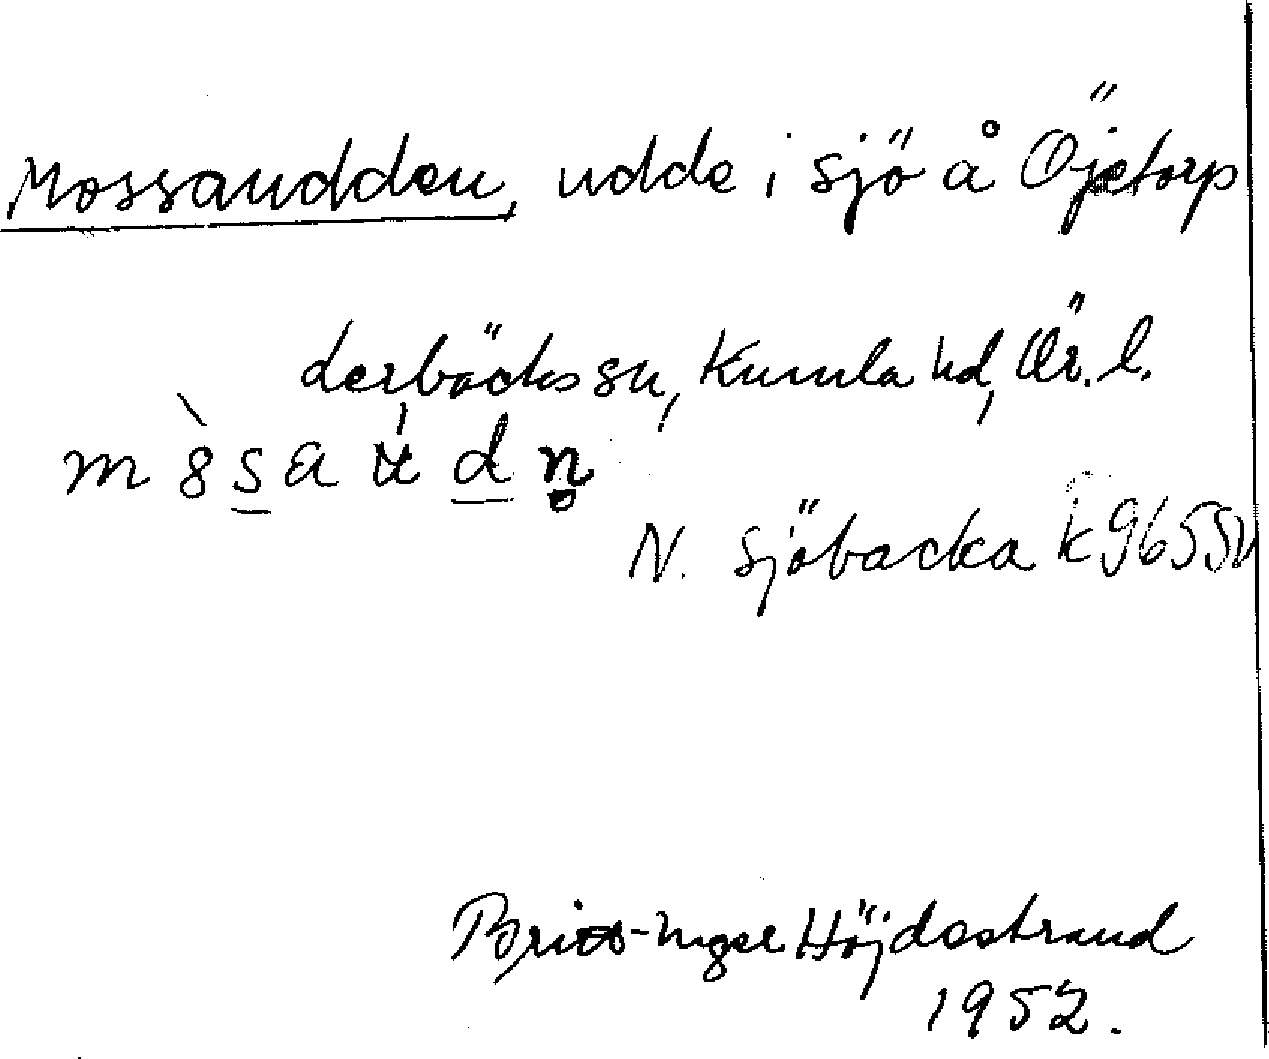 Mossaudden, udde i sjö å Öjetorp
Lerbäcks sn, Kumla hd, Ör. l.
N. Sjöbacka k 9655
Britt-Inger Höjdestrand
1952.